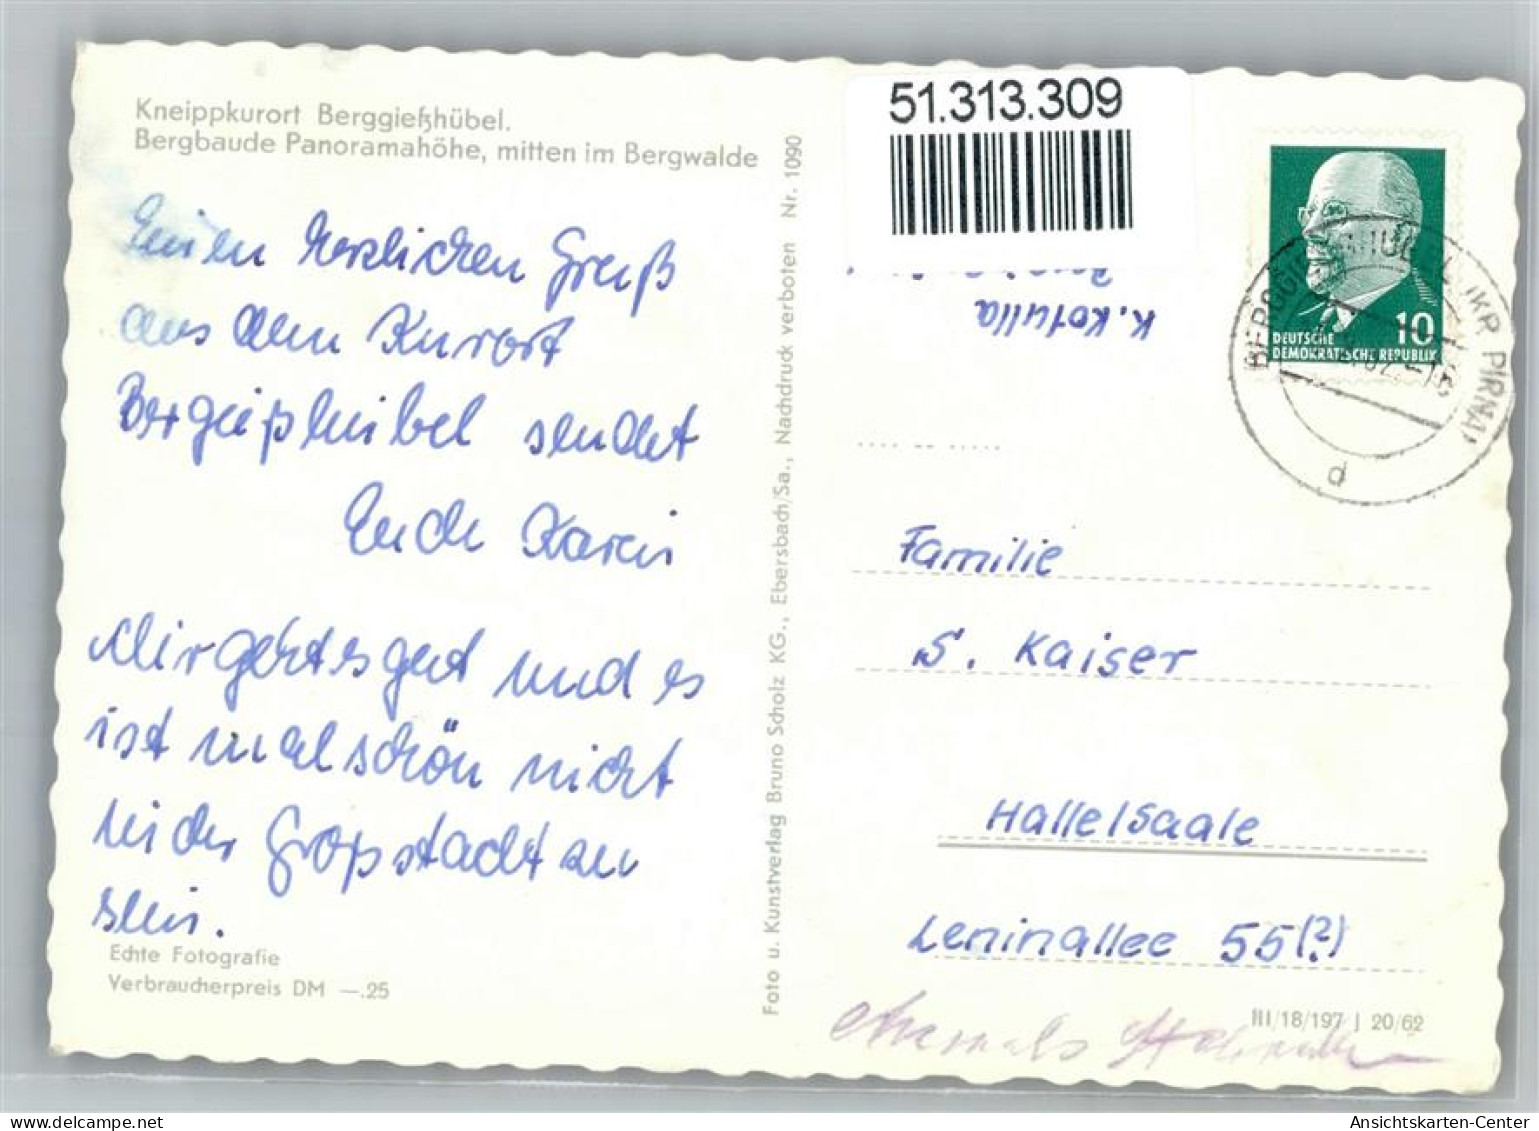 Kneippkurort Berggießhübel.
Bergbaude Panoramahöhe, mitten im Bergwalde
Einen herzlichen Gruß
aus dem Kurort
Berggießhübel sendet
Euch Karin
Mir geht es gut und es
ist mal schön nicht
in der Großstadt zu
sein.
Echte Fotografie
Verbraucherpreis DM —.25
Foto u. Kunstverlag Bruno Scholz KG., Ebersbach/Sa., Nachdruck verboten Nr. 1090
51.313.309
K. Kotulla
10
DEUTSCHE
DEMOKRATISCHE REPUBLIK
PIRNA
d
Familie
S. Kaiser
Halle/Saale
Leninallee 55(?)
III/18/197 J 20/62
Ansichtskarten-Center